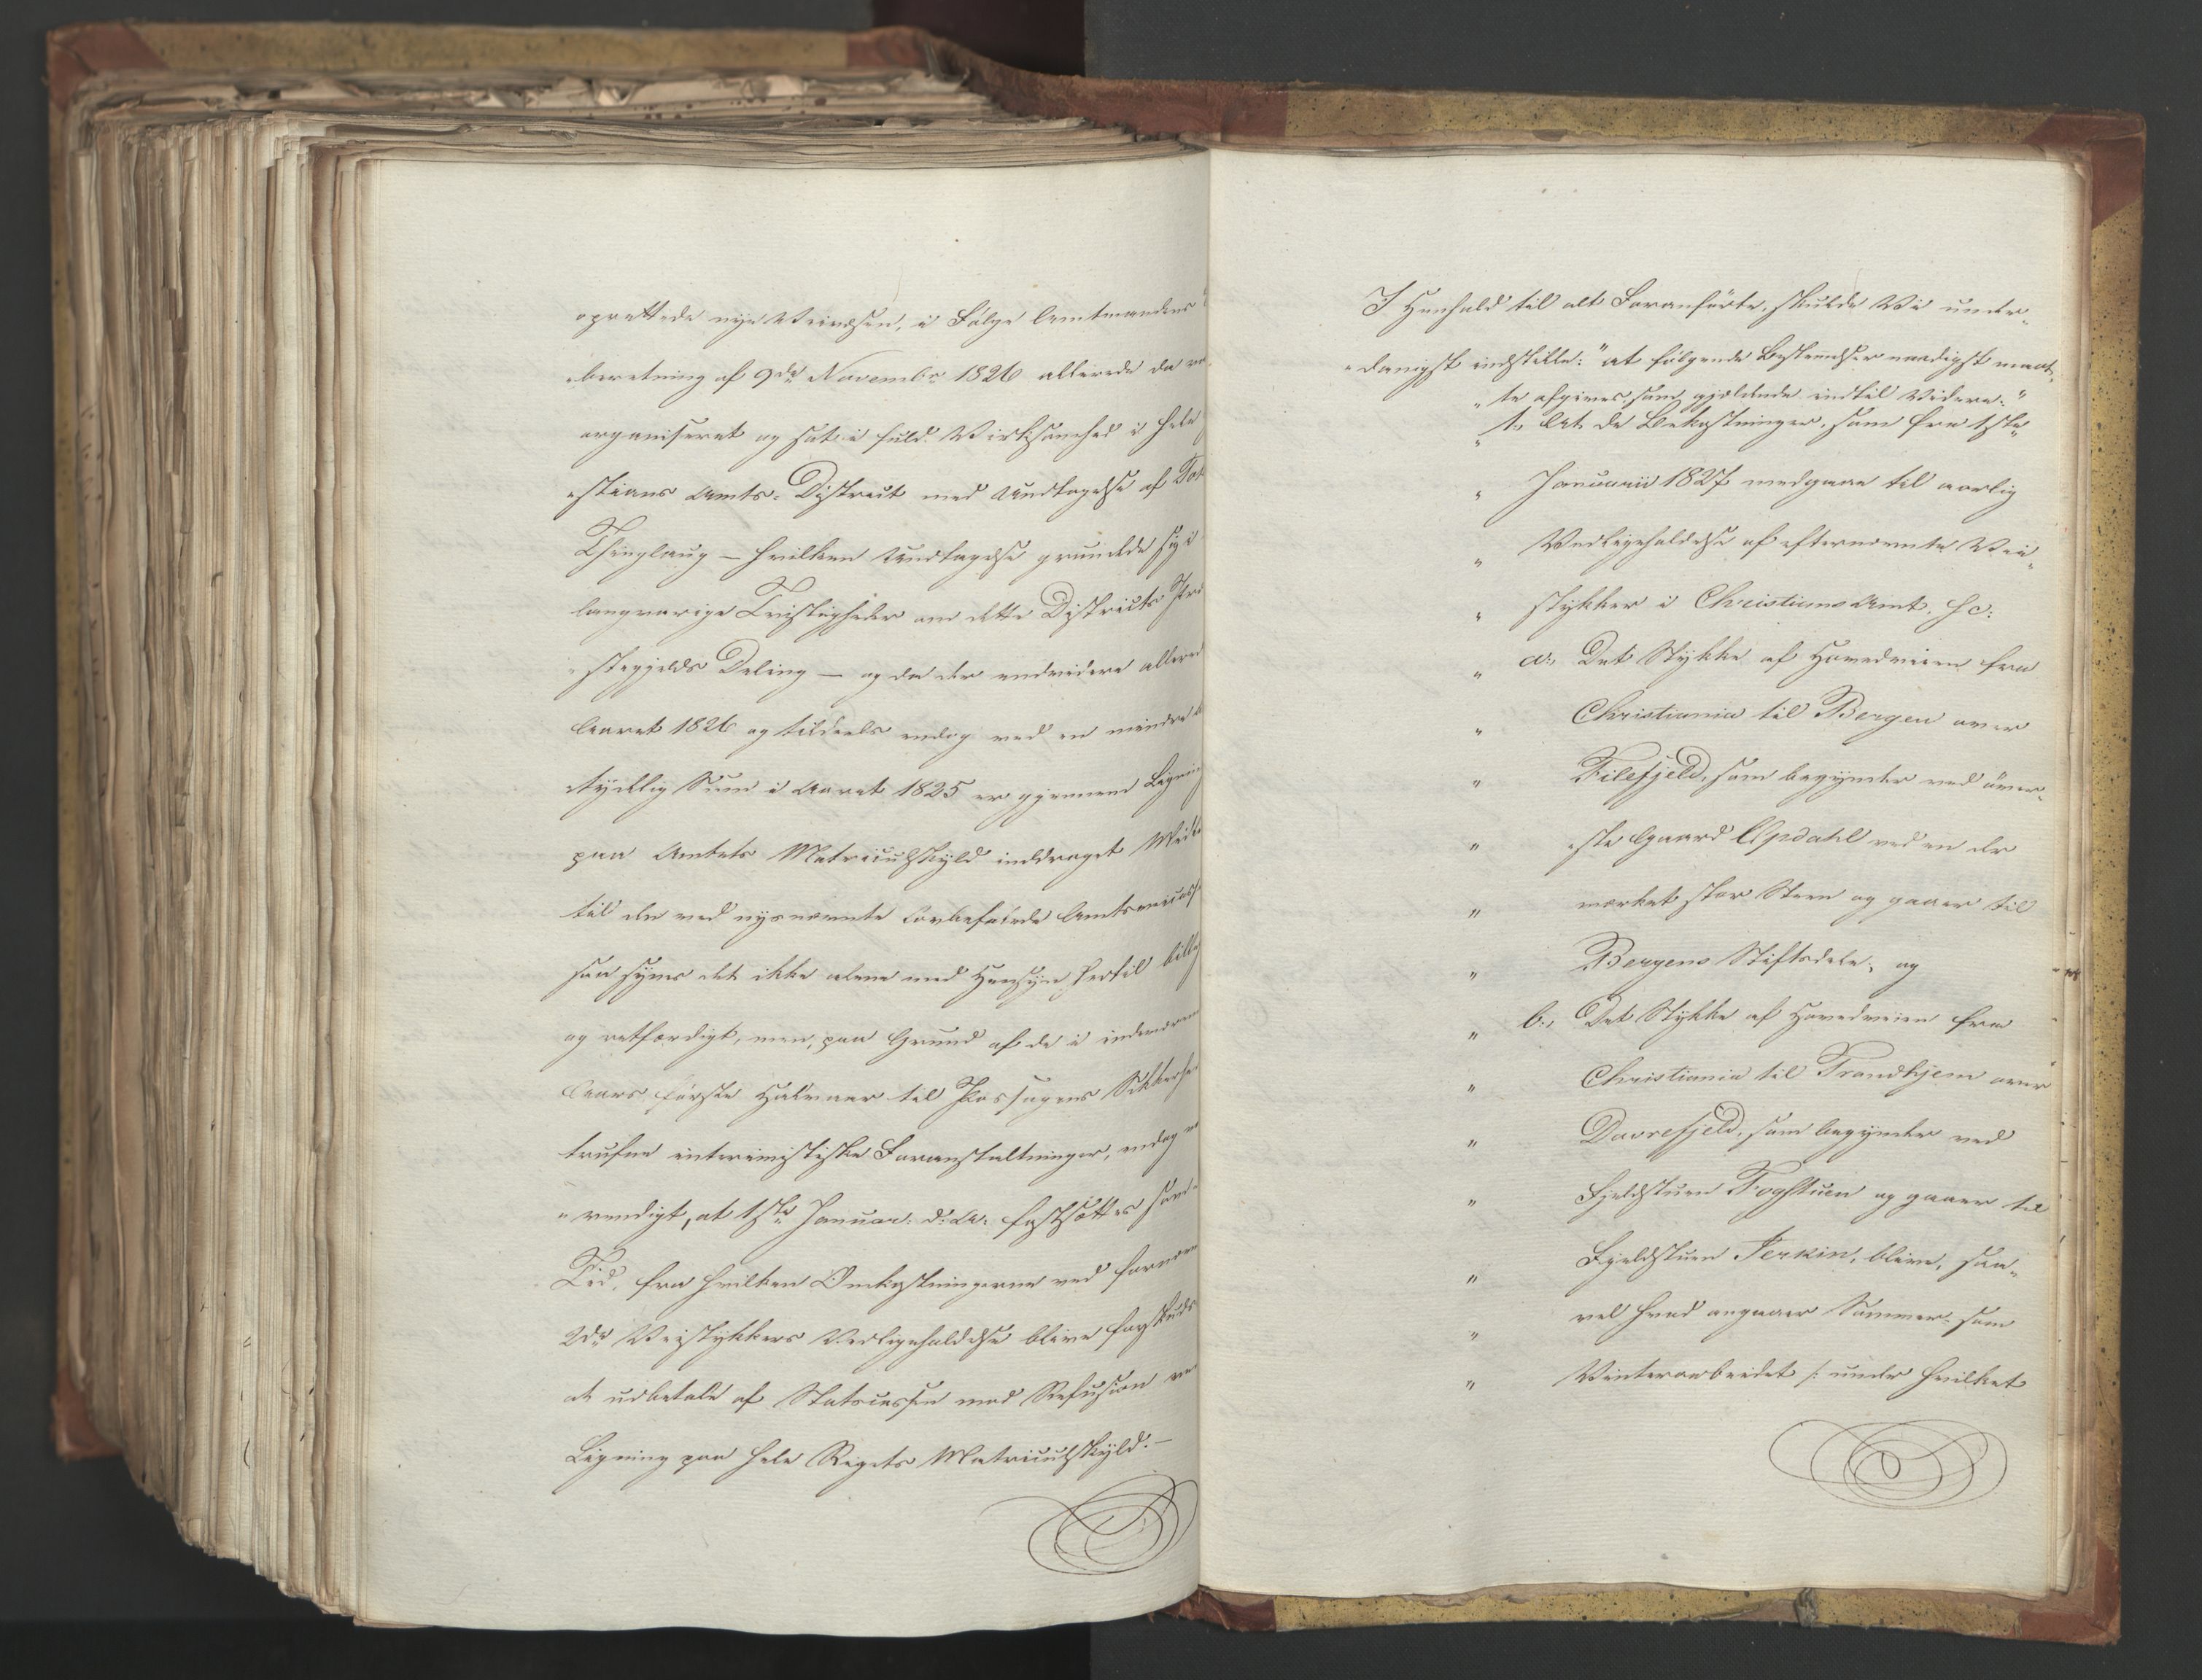 oprettede nye Veivæsen, i Følge Amtmandens
„beretning af 9de Novembr 1826 allerede da va
organiseret og sat i fuld Virksomhed i hele
„stians Amts-District med Undtagelse af Tot
Thinglaug — hvilken Undtagelse grundede sig i
langvarige Tvistigheder om dette Districts Præ
„stegjelds Deling — og da der endvidere allered
Aaret 1826 og tildeels endog med en mindre
tydelig Sum i Aaret 1825 er gjennem Ligning
paa Amtets Matriculskyld inddraget Midle
til den ved nysnævnte Lov befalede Amtsveicasse
saa synes det ikke alene med Hensyn hertil billig
og retfærdigt, men, paa Grund af de i indeværen
Aars første Halvaar til Passagens Sikkerhed
trufne interimistiske Foranstaltninger, endog nø
„vendigt, at 1ste Januar d: A: fastsættes som
Tid, fra hvilken Omkostningerne ved fornævn
2de Veistykkers Vedligeholdelse blive forskuds
at udbetale af Statscassen mod Refusion ve
Ligning paa hele Rigets Matriculskyld. —
I Henhold til alt Foranførte, skulde Vi under„
„danigst indstille: "at følgende Bestemmelser naadigst maat„
„te afgives, som gjeldende indtil Videre:"
„ 1., At de Bekostninger, som fra 1ste
„ Januarii 1827 medgaae til aarlig
„ Vedligeholdelse af efternævnte Vei„
„ stykker i Christians Amt, sc:
„ a., Det Stykke af Hovedveien fra
„ Christiania til Bergen over
„ Filefjeld, som begynder ved øver„
„ ste Gaard Opdahl ved en der
„ mærket stor Steen og gaaer til
„ Bergens Stiftsdele, og
„ b., Det Stykke af Hovedveien fra
„ Christiania til Trondhjem over
„ Dovrefjeld, som begynder ved
„ Fjeldstuen Fogstuen og gaaer til
„ Fjeldstuen Jerkin, blive, saa„
„ vel hvad angaaer Sommer- som
„ Vinterarbeidet /: under hvilket